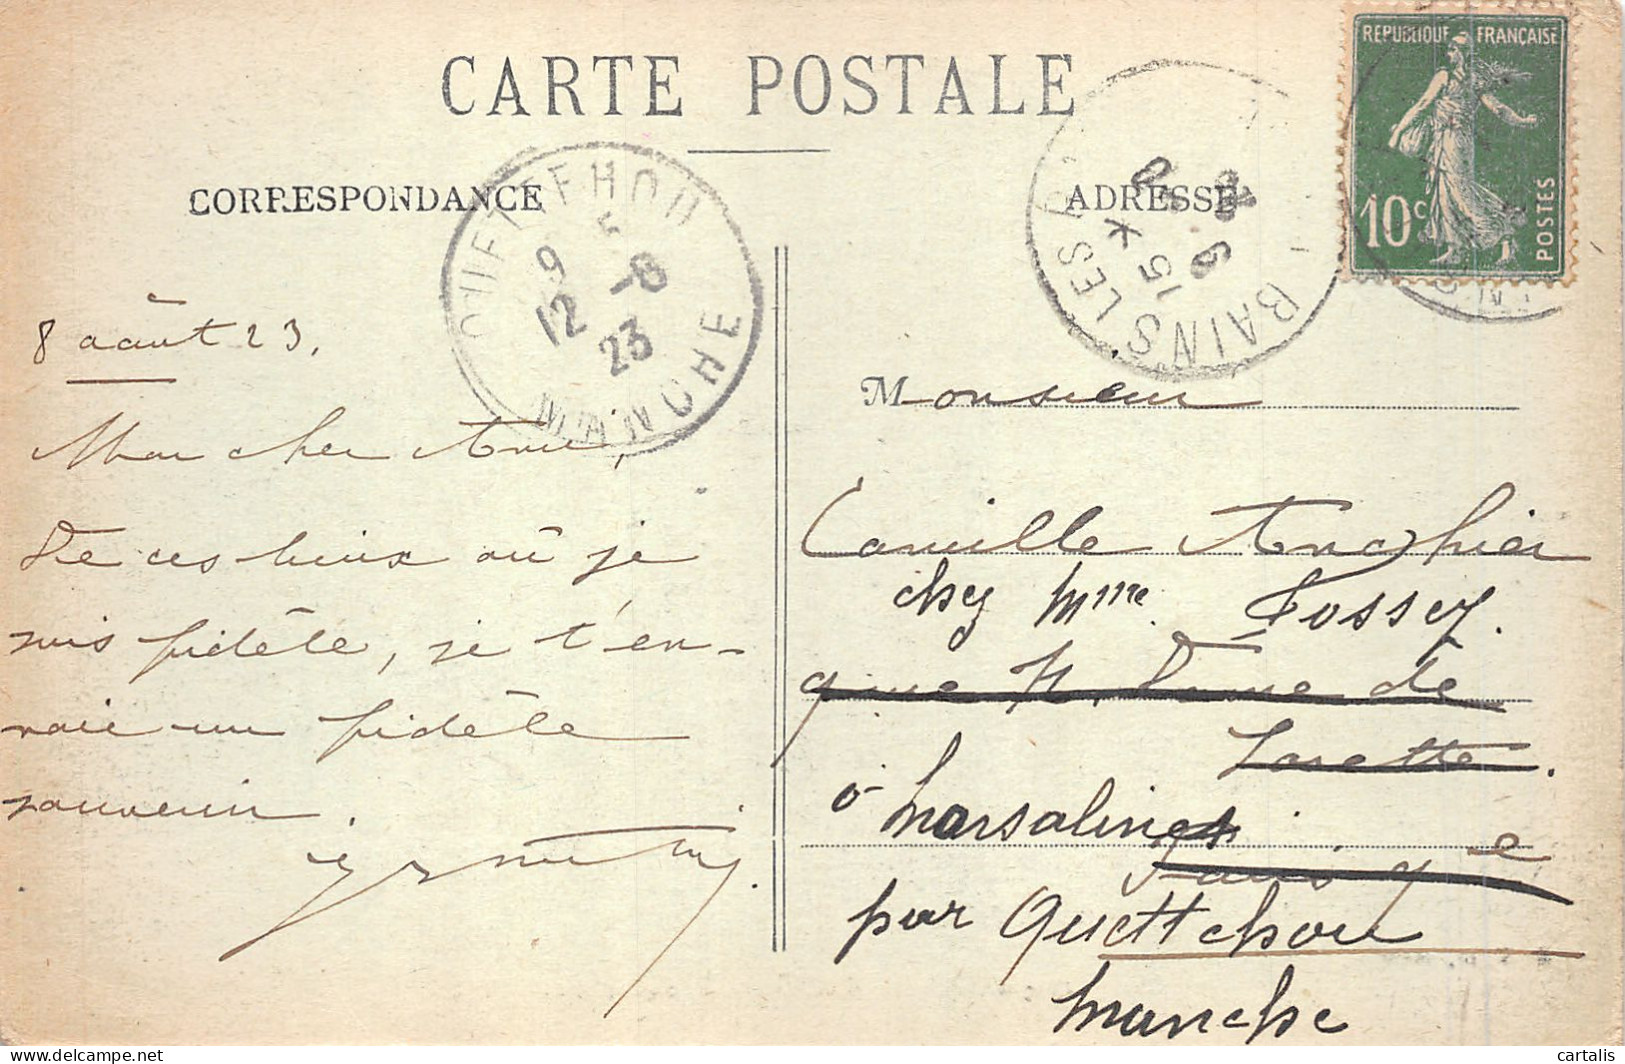 CARTE POSTALE
CORRESPONDANCE
ADRESSE
RÉPUBLIQUE FRANÇAISE
10c
POSTES
QUETTEHOU
9
12
-8
23
MANCHE
BAINS LES
15
9
8 août 23.
Mon cher Ami,
De ces lieux où je
suis fidèle, je t'en-
voie un fidèle
souvenir.
Monsieur
Camille
chez Mme Fossey.
9 rue N. Dame de
Lorette.
à Morsalines
Paris 9e
par Quettehou
Manche
delcampe.net
cartalis